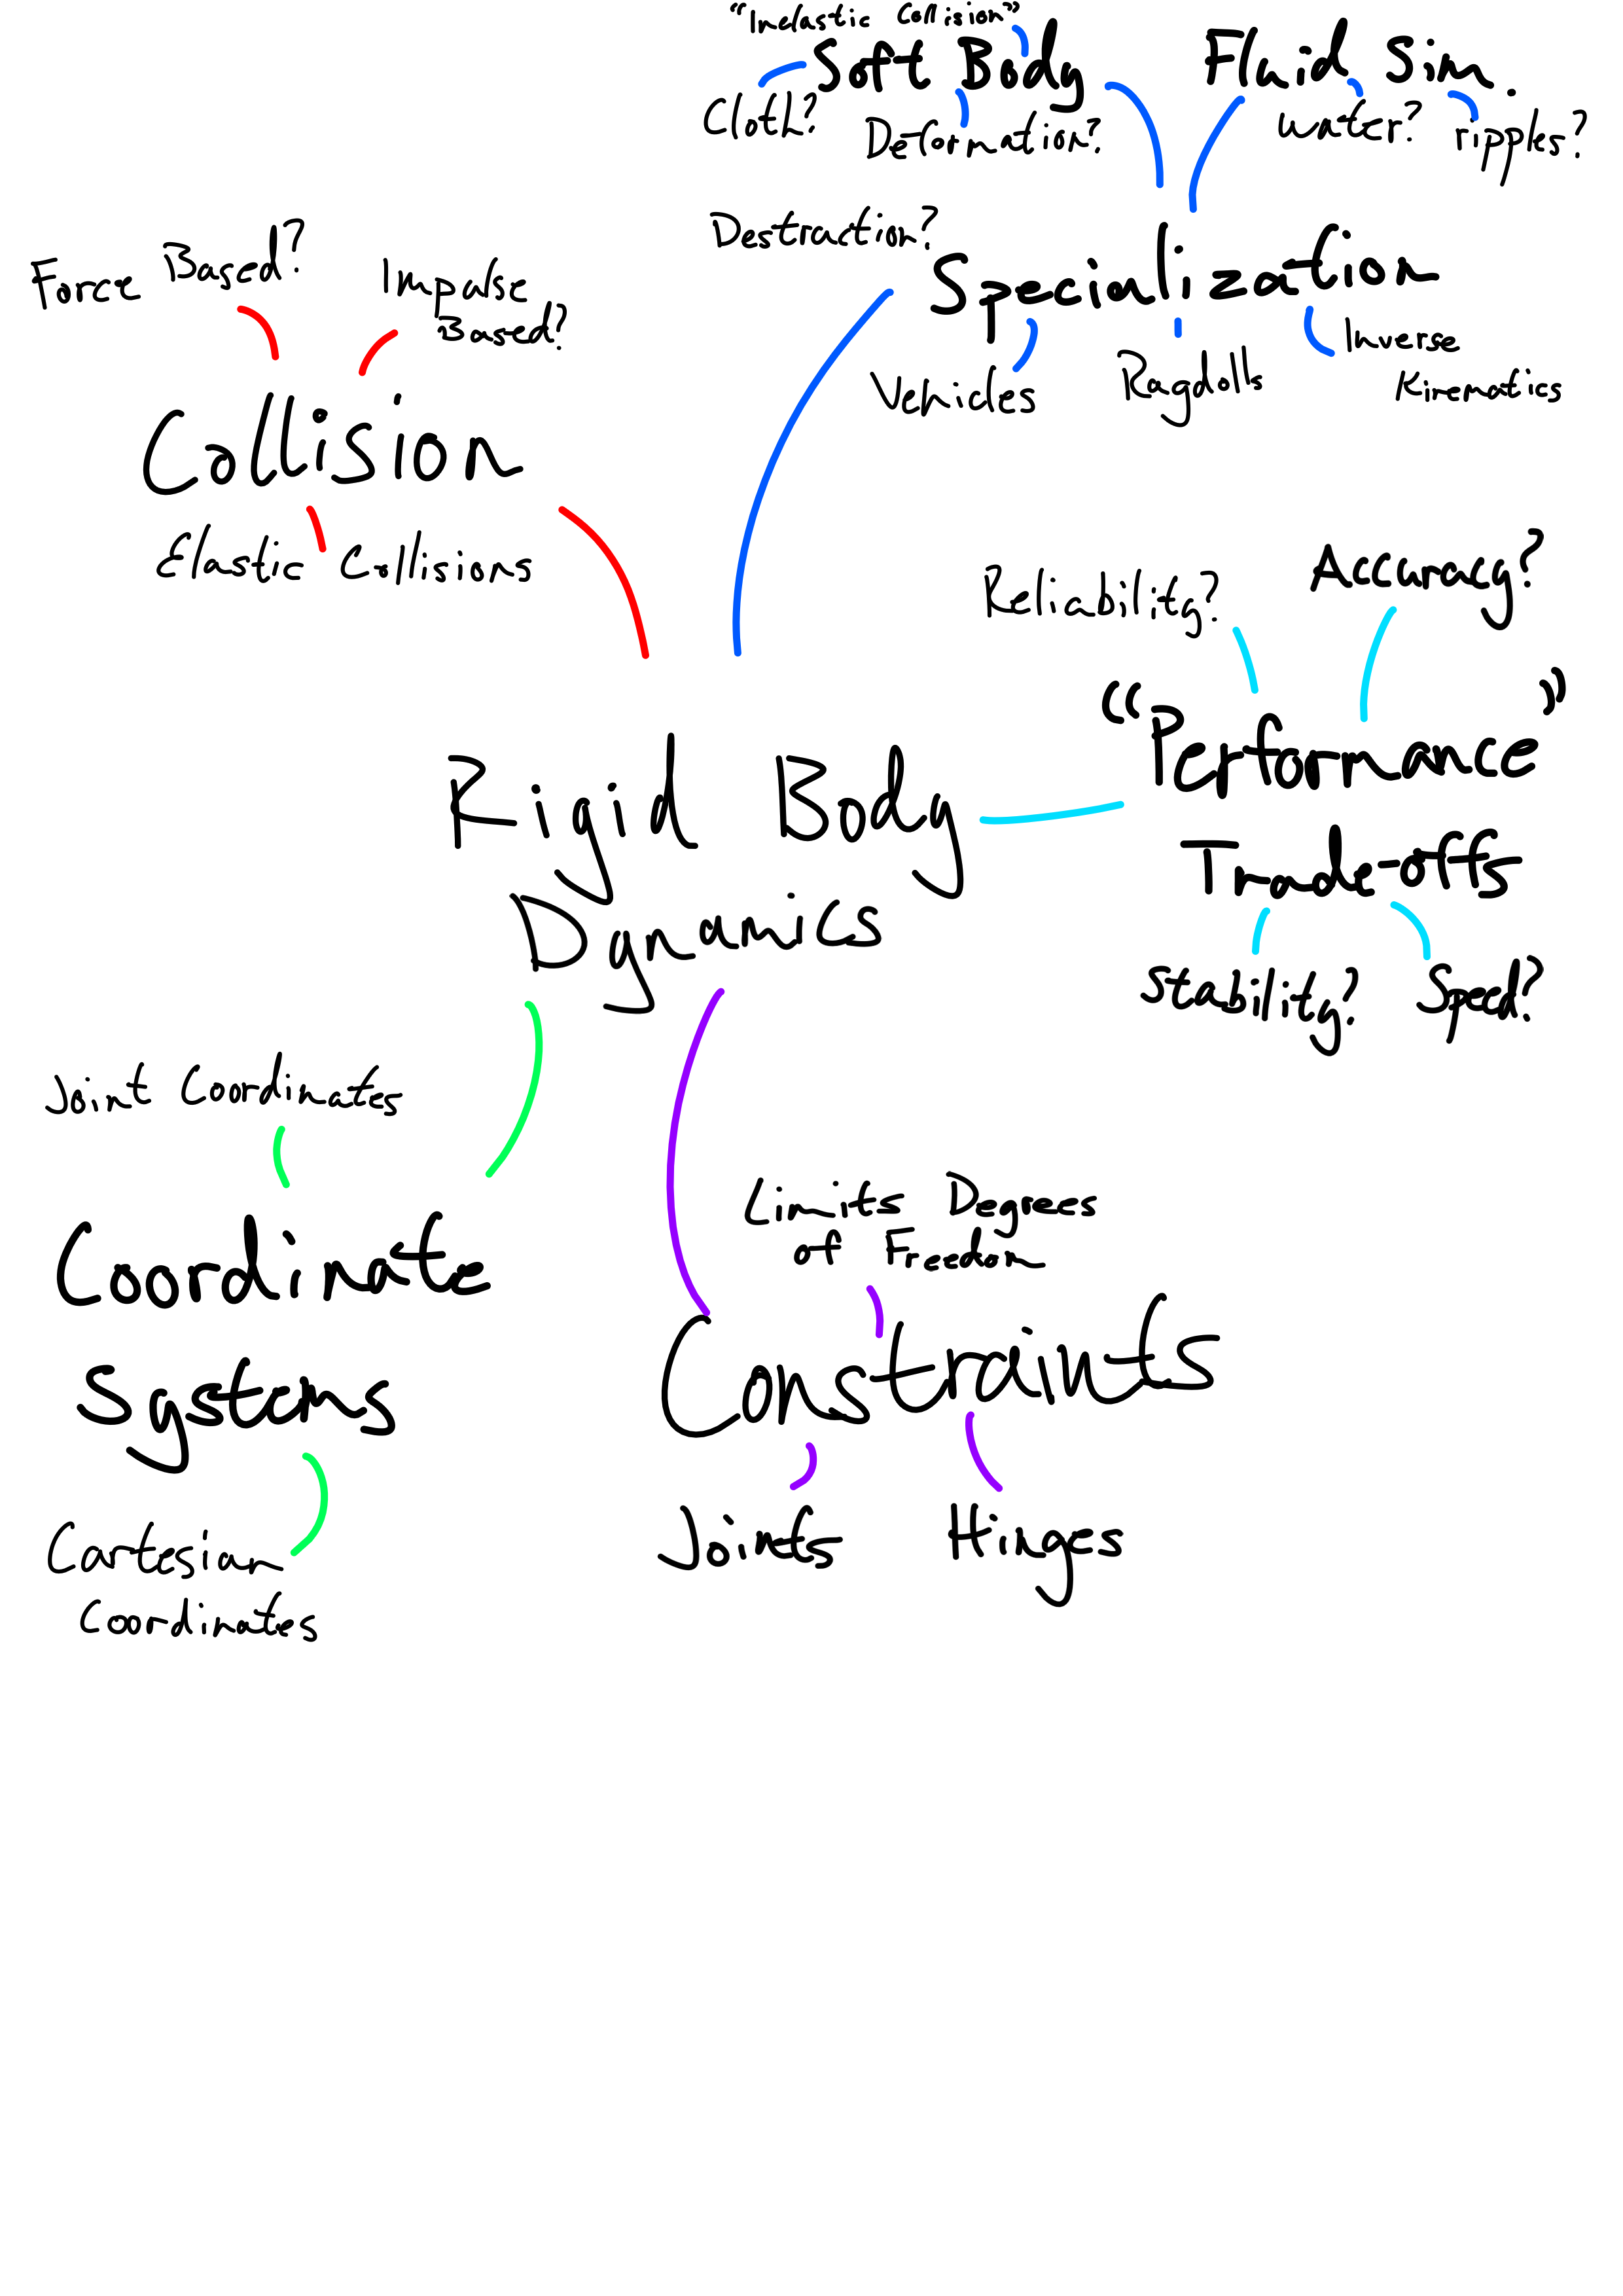 "Inelastic Collision"
Soft Body
Fluid Sim.
Cloth?
Deformation?
water?
ripples?
Destruction?
Specialization
Vehicles
Ragdolls
Inverse
Kinematics
Force Based?
Impulse
Based?
Collision
Elastic Collisions
Reliability?
Accuracy?
"Performance"
Trade-offs
Stability?
Speed?
Rigid Body
Dynamics
Joint Coordinates
Coordinate
Systems
Cartesian
Coordinates
Limits Degrees
of Freedom
Constraints
Joints
Hinges